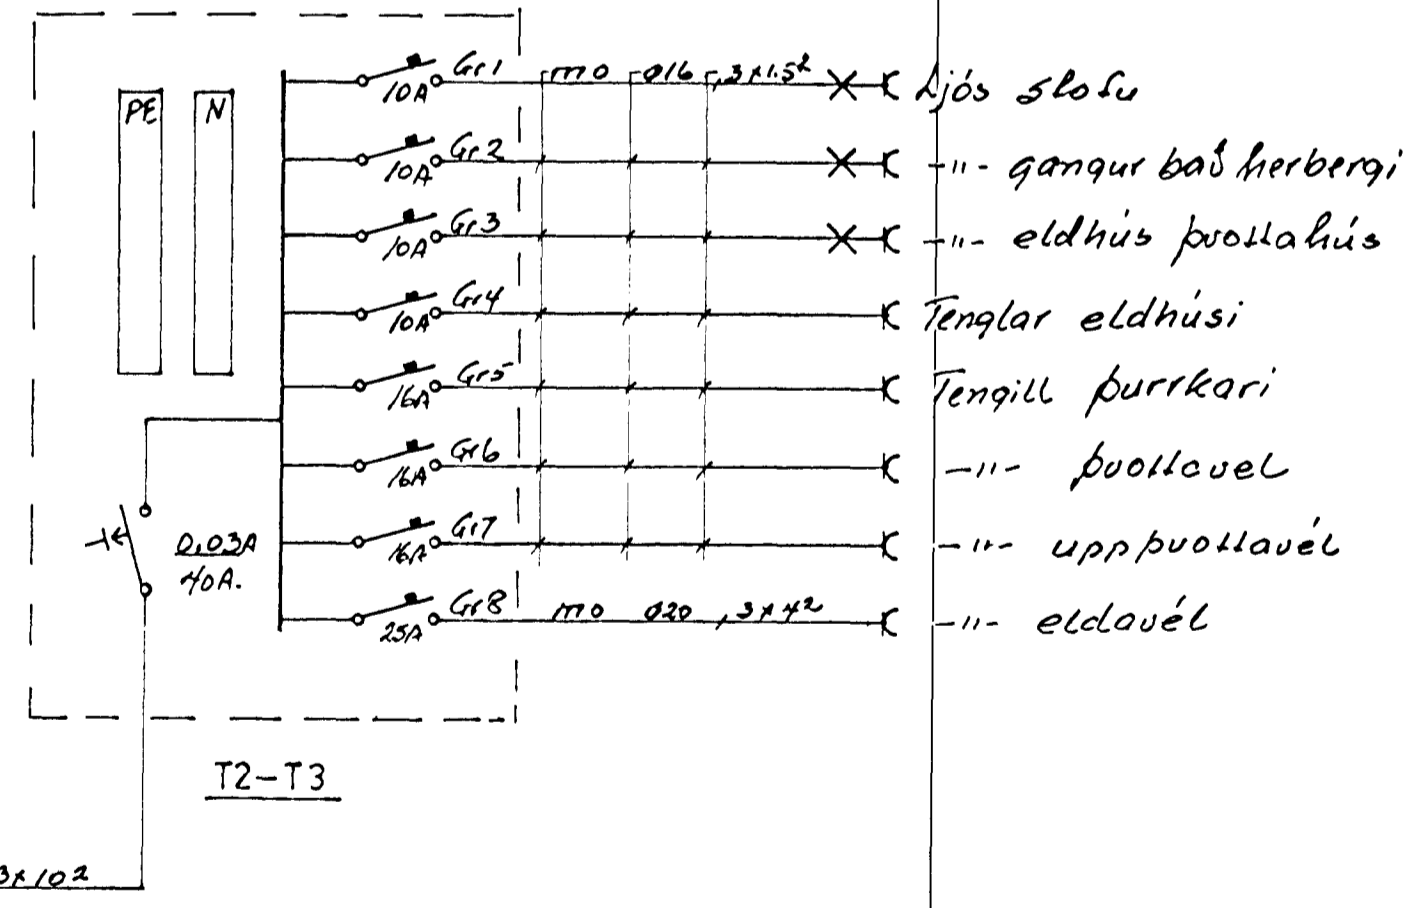 Gr1 mo ø16, 3x1.5² Ljós stofu
PE N 10A
Gr2 -"- gangur bað herbergi
10A
Gr3 -"- eldhús þvottahús
10A
Gr4 Tenglar eldhúsi
10A
Gr5 Tengill þurrkari
16A
Gr6 -"- þvottavel
16A
Gr7 -"- uppþvottavél
0,03A 16A
40A.
Gr8 mo ø20, 3x4² -"- eldavél
25A
T2-T3
3x10²